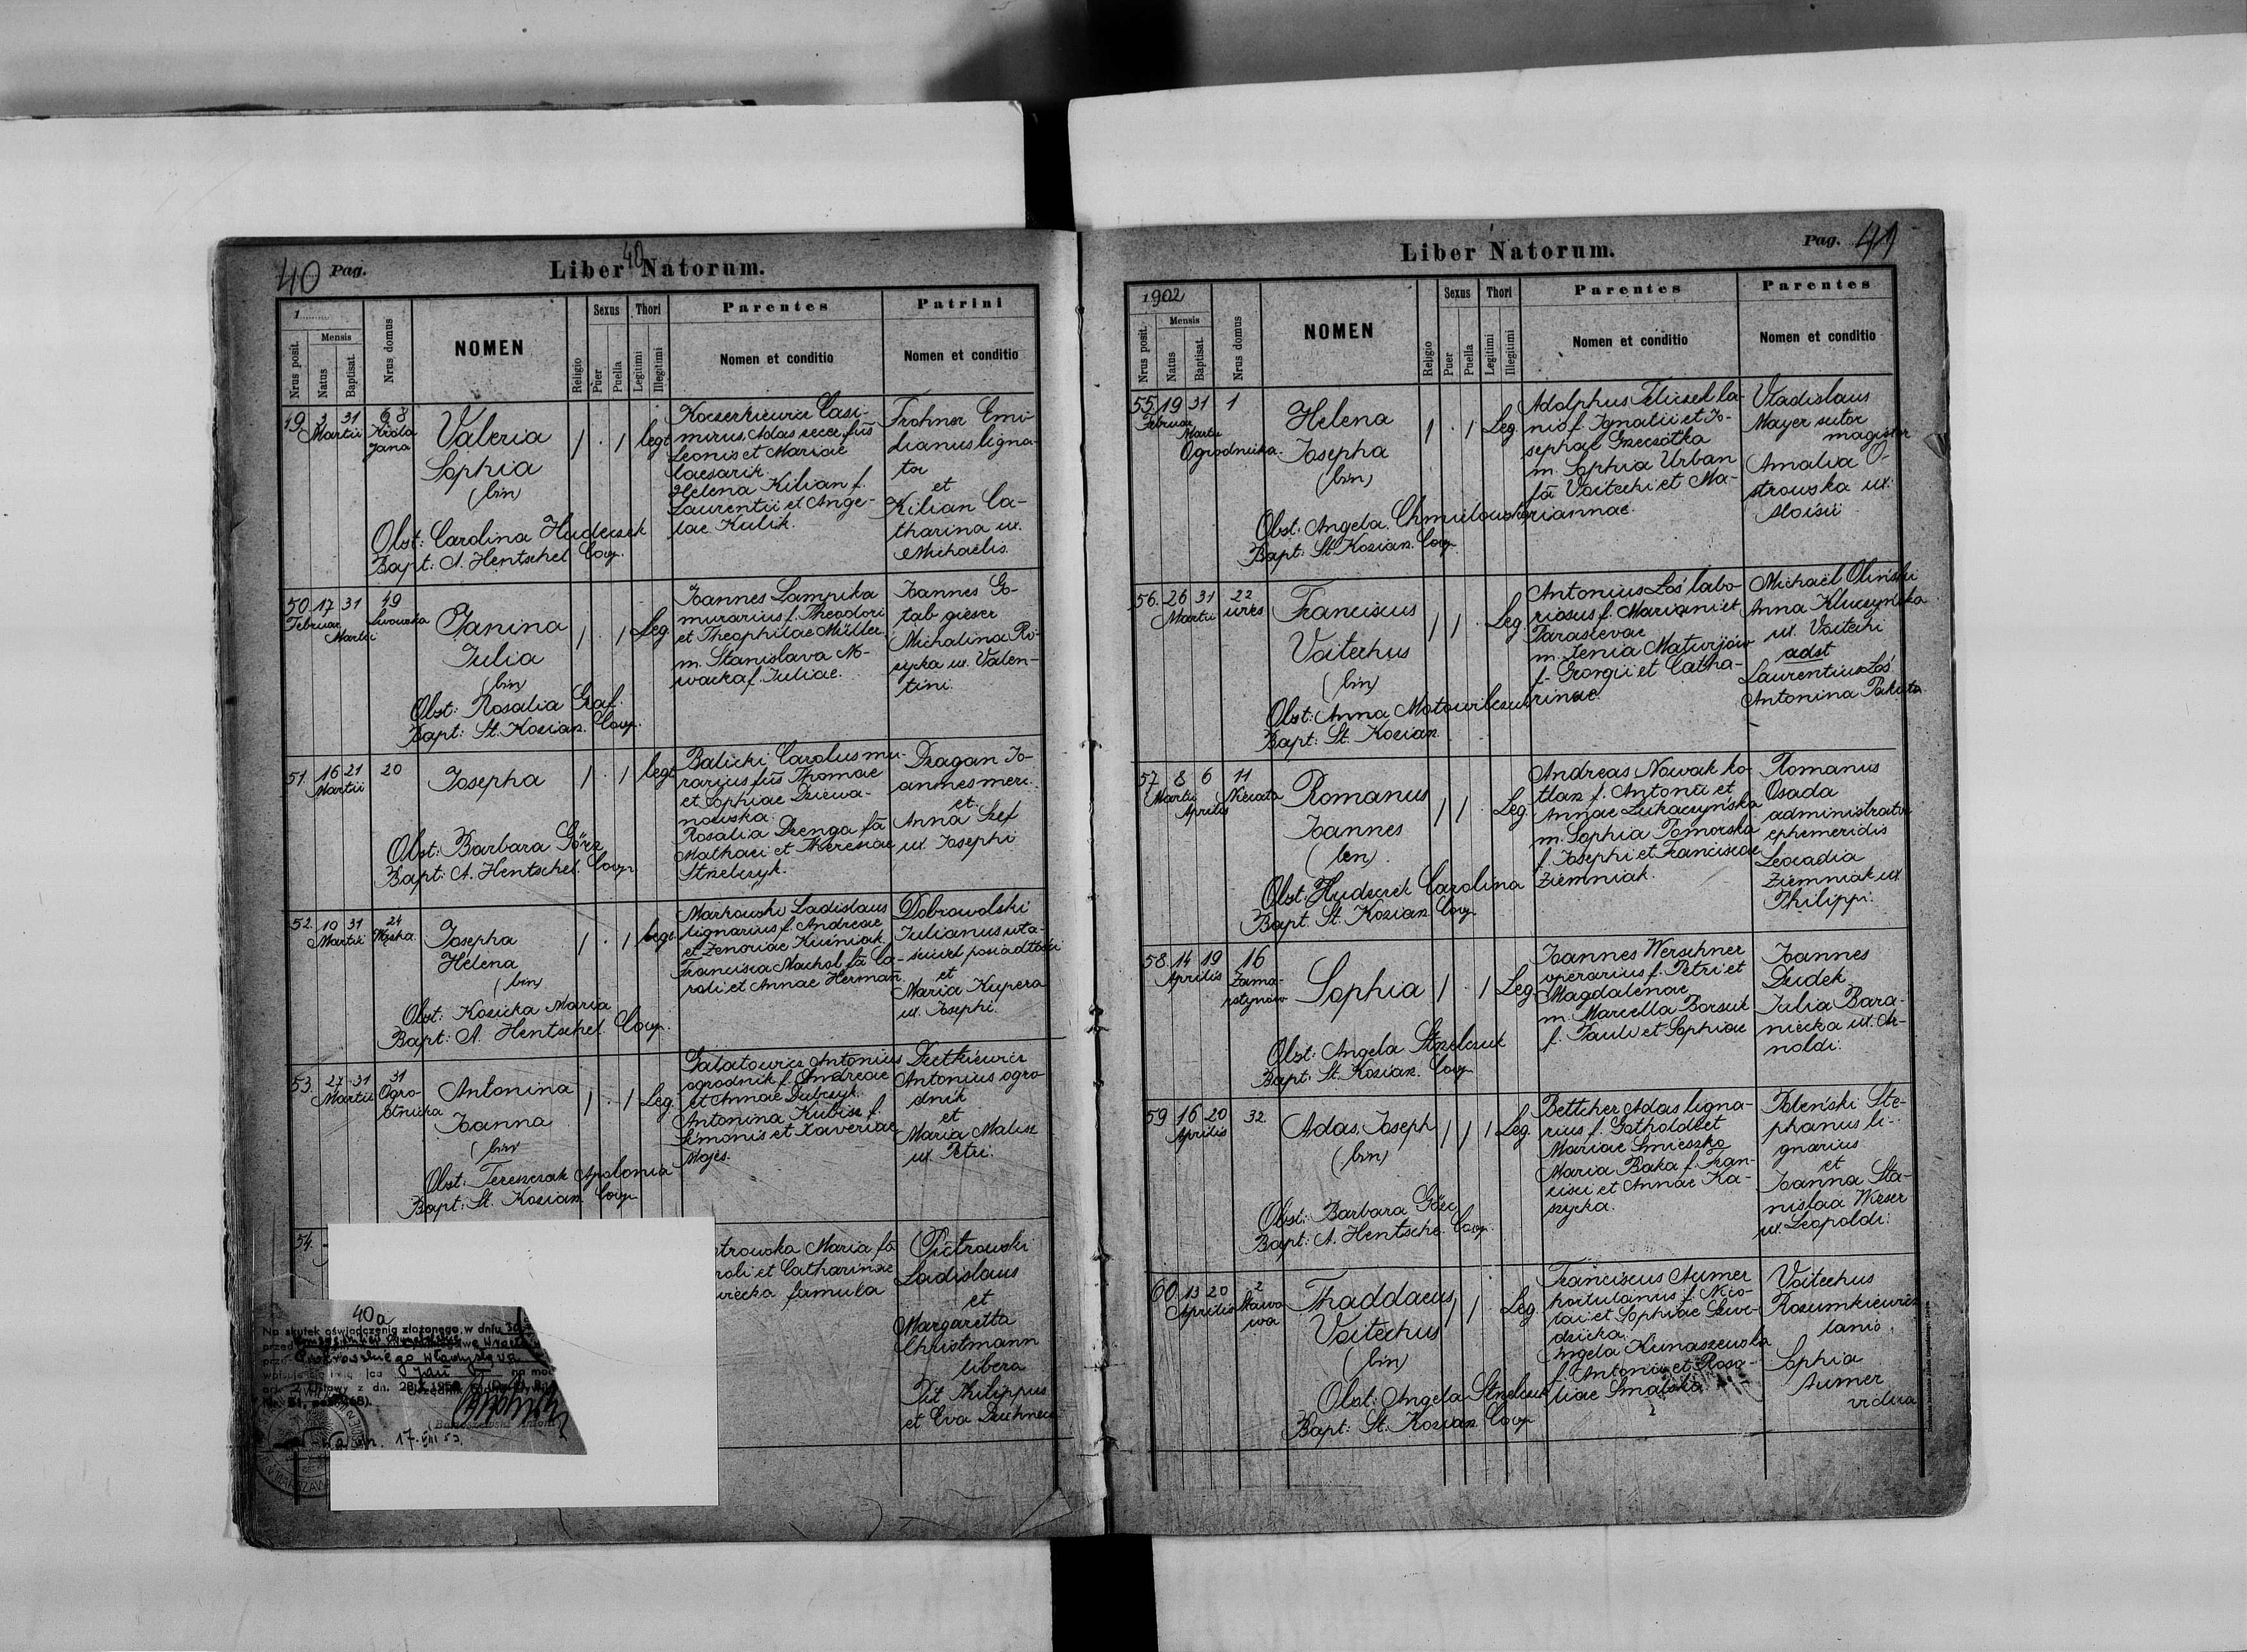 40 Pag.
40
Liber Natorum.
1
Nrus posit.
Mensis
Natus
Baptisat.
Nrus domus
NOMEN
Religio
Sexus
Puer
Puella
Thori
Legitimi
Illegitimi
Parentes
Nomen et conditio
Patrini
Nomen et conditio
49 3 31 68
Martii Króla
Jana
Valeria
Sophia
(bin)
1 . 1 legt
Obst: Carolina Hudeczek
Bapt: A. Hentschel Coop.
Casi-
mirus, Adas fius
Leonis et Mariae
Helena Kilian f.
Laurentii et Ange-
lae Kulik.
Frohner Emi-
lianus ligna-
tor
et
Kilian Ca-
tharina ux.
Michaelis.
50 17 31 49
Februar Lwowska
Martii
Janina
Julia
(bin)
1 . 1 Leg
Obst: Rosalia Graf.
Bapt: St. Kozian. Coop.
Joannes Lampika
murarius f. Theodori
et Theophilae Müller.
m. Stanislava No-
wacka f. Juliae.
Joannes Go-
łąb gieser
Michalina Ró-
życka ux. Valen-
tini.
51. 16 21 20
Martii
Josepha
1 . 1 legt
Obst: Barbara Görz
Bapt: A. Hentschel. Coop.
Balicki Carolus mu-
rarius fius Thomae
et Sophiae Dziewa-
nowska.
Rosalia Dzenga fa
Mathaei et Theresiae
Strzelczyk.
Dragan Jo-
annes merc.
et
Anna Szef
ux. Josephi
52. 10 31 24
Martii Wąska.
Josepha
Helena
(bin)
1 . 1 legt.
Obst: Kozicka Maria
Bapt: A. Hentschel. Coop.
Markowski Ladislaus
lignarius f. Andreae
et Zenoviae Kuśniak.
Francisca Machol fa Ca-
roli et Annae Herman.
Dobrowolski
Julianus wła-
ściciel posiadłości
et
Maria Kupera
ux. Josephi.
53. 27 31 31
Martii Ogro-
dnicka
Antonina
Joanna
(bin)
1 . 1 Leg
Obst: Tereszczak Apolonia
Bapt: St. Kozian. Coop.
Galatowicz Antonius
ogrodnik f. Andreae
et Annae Dubczyk.
Antonina Kubisz f.
Simonis et Xaveriae
Mojes.
Dutkiewicz
Antonius ogro-
dnik
et
Maria Malisz
ux. Petri.
54.
trowska Maria fa
roli et Catharinae
famula
Pietrowski
Ladislaus
et
Margaretta
Christmann
libera
Pit Philippus
et Eva
40a
Na skutek oświadczenia złożonego w dniu 30
przed
wpisuje się
art. 2 Ustawy z dn.
17. VIII 53.
Liber Natorum.
Pag. 41
1902
Nrus posit.
Mensis
Natus
Baptisat.
Nrus domus
NOMEN
Religio
Sexus
Puer
Puella
Thori
Legitimi
Illegitimi
Parentes
Nomen et conditio
Parentes
Nomen et conditio
55 19 31 1
Februar
Martii
Ogrodnicka.
Helena
Josepha
(bin)
1 . 1 Leg
Obst: Angela
Bapt: St. Kozian. Coop.
Adolphus Feliczek la-
nio f. Ignatii et Jo-
sephae
m. Sophia Urban
fa Voitechi et Ma-
riannae.
Vladislaus
Mayer sutor
magister
Amalia O-
strowska ux.
Aloisii
56. 26 31 22
Martii
Franciscus
Voitechus
(bin)
1 1 . Leg.
Obst: Anna
Bapt: St. Kozian
Antonius Łoś labo-
riosus f. Mariani et
Parascevae
m. Xenia Matwijów
f. Georgii et Catha-
rinae.
Michaël Oliński
Anna Kluczyńska
ux. Voitechi
adst
Laurentius Łoś
Antonina
57 8 6 11
Martii
Aprilis
Romanus
Joannes
(bin).
1 1 . Leg.
Obst: Hudeczek Carolina
Bapt. St. Kozian Coop.
Andreas Nowak ko-
tlarz f. Antonii et
Annae Łukaczyńska
m. Sophia Pomorska
f. Josephi et Franciscae
Ziemniak.
Romanus
Osada
administrator
ephemeridis
Leocadia
Ziemniak ux
Philippi.
58 14 19 16
Aprilis Zama-
rstynów
Sophia
1 . 1 Leg
Obst: Angela Strzelczuk
Bapt: St. Kozian. Coop
Joannes Werschner
operarius f. Petri et
Magdalenae
m. Marcella Borsuk
f. Pauli et Sophiae
Joannes
Dudek.
Julia Bara-
niecka ux. Ar-
noldi.
59 16 20 32.
Aprilis
Adas. Joseph
(bin)
1 1 1 Leg.
Obst: Barbara Görz
Bapt: A. Hentsche. Coop.
Bettcher Adas ligna-
rius f. Gotholdi et
Mariae Smieszko
Maria Baka f. Fran-
cisci et Annae Ka-
szycka.
Poleński Ste-
phanus li-
gnarius
et
Joanna Sta-
nislaa Wieser
ux. Leopoldi.
60 13 20 2
Aprilis Stawo
wa
Thaddaeus
Voitechus
(bin)
1 1 . Leg
Obst: Angela Strzelczuk
Bapt: St. Kozian. Coop
Franciscus Aumer
hortulanus f. Nico-
lai et Sophiae
Angela Kunaszewska
f. Antonii et Rosa-
liae Smalska.
Voitechus
Rozumkiewicz
lanio,
Sophia
Aumer
vidua